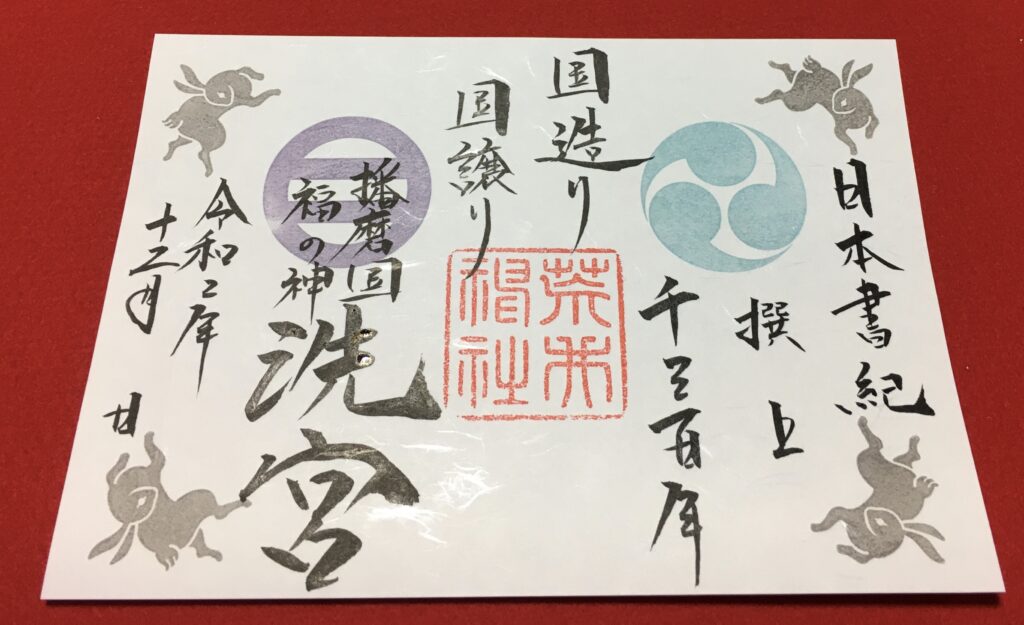 日本書紀
撰上
千三百年
国造り
国譲り
荒井
神社
播磨国
福の神
洗宮
令和二年
十二月
日